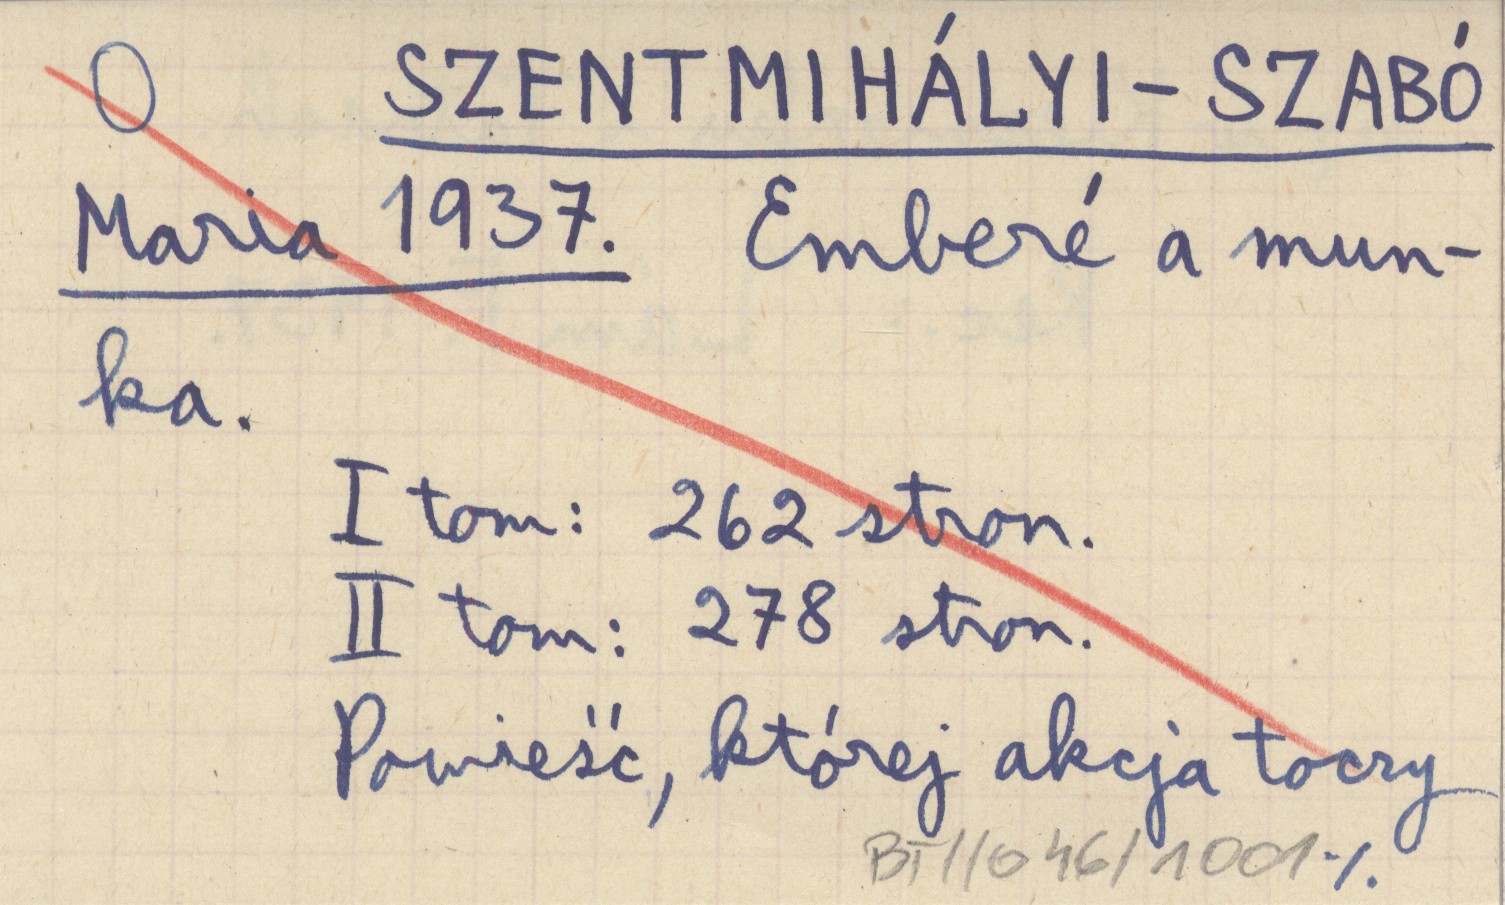 O SZENTMIHÁLYI-SZABÓ
Maria 1937. Emberé a mun-
ka.
I tom: 262 stron.
II tom: 278 stron.
Powieść, której akcja toczy
BT//046/1001 ./.